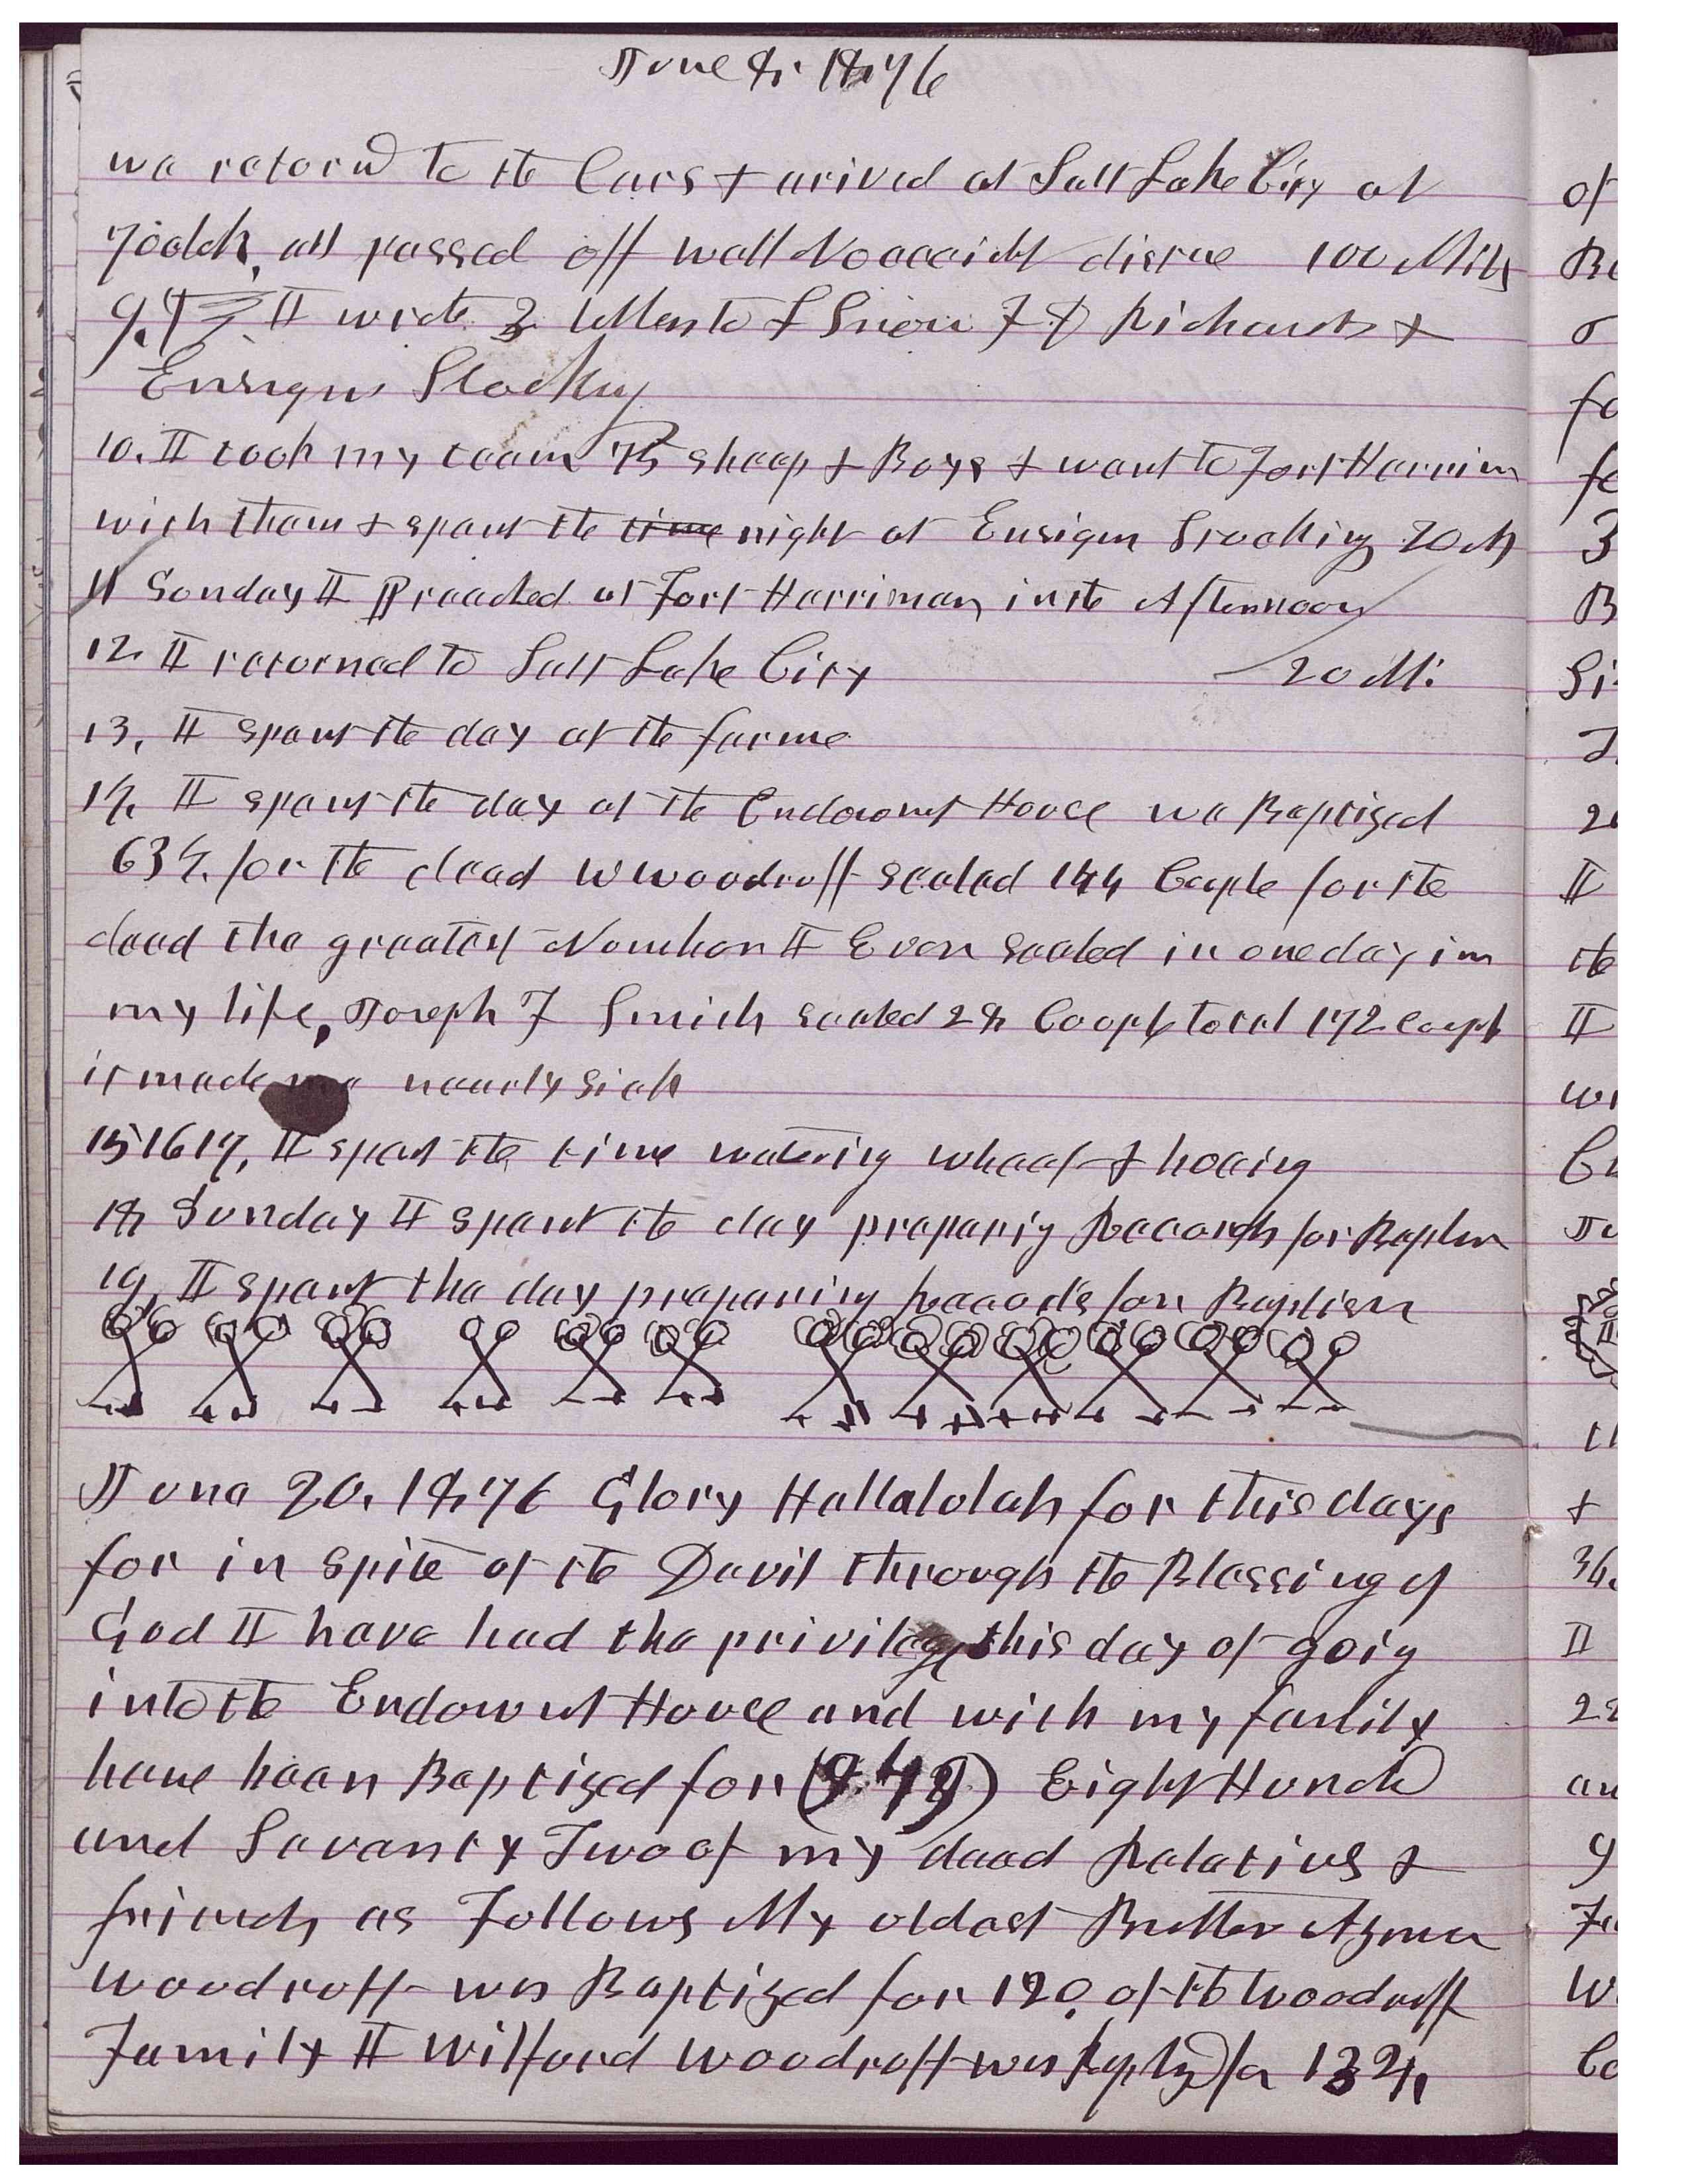 June 8, 1876
we returnd to the Cars & arived at Salt Lake City at
7 oclok, all passed off well No accidt distance 100 Mils
9. I wrote 3 letters to L Snow F D Richards &
Ensign Stocking
10. I took my team 75 sheep & Boys & went to Fort Harrim
with them & spent the time night at Ensign Stocking 20 M
11 Sunday I Preached at Fort Harriman in the Afternoon
12. I returned to Salt Lake City 20 M:
13, I spent the day at the farme
14. I spent the day at the Endowmt House we Baptized
634. for the dead W Woodruff sealed 144 Couple for the
dead the greatest Number I Ever sealed in one day in
my life, Joseph F Smith sealed 28 Coople total 172 Coupl
it made me nearly sick
15 16 17, I spent the time watering wheat & hoeing
18 Sunday I spent the day preparing Records for Baptism
19, I spent the day preparing records for Baptism
June 20. 1876 Glory Hallalulah for this days
for in spite of the Devil through the Blessing of
God I have had the privilege this day of going
into the Endowmt House and with my family
have been Baptized for Eight Hundd
and Seventy Two of my dead Relatives &
friends as Follows My oldest Brother Azmon
Woodruff was Baptized for 120. of the Woodruff
Family I Wilford Woodruff was baptizd for 134,
of
fo
3
B
Si
2
I
the
I
&
36.
I
22
9
W
Co